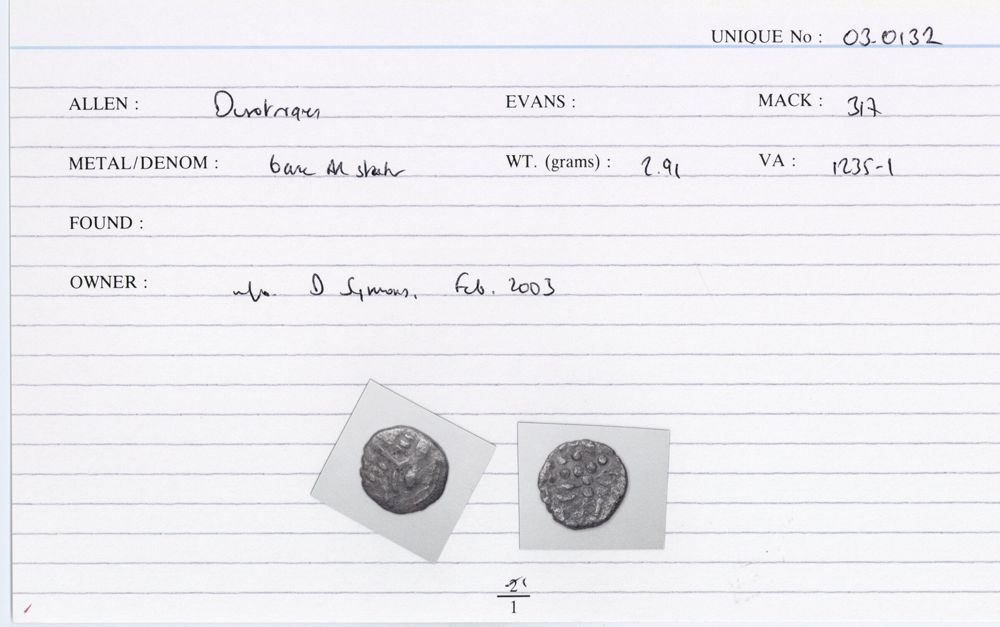 UNIQUE No : 03.0132
ALLEN : Durotriges EVANS : MACK : 317
METAL/DENOM : base AR stater WT. (grams) : 2.91 VA : 1235-1
FOUND :
OWNER : D Symons, Feb. 2003
1